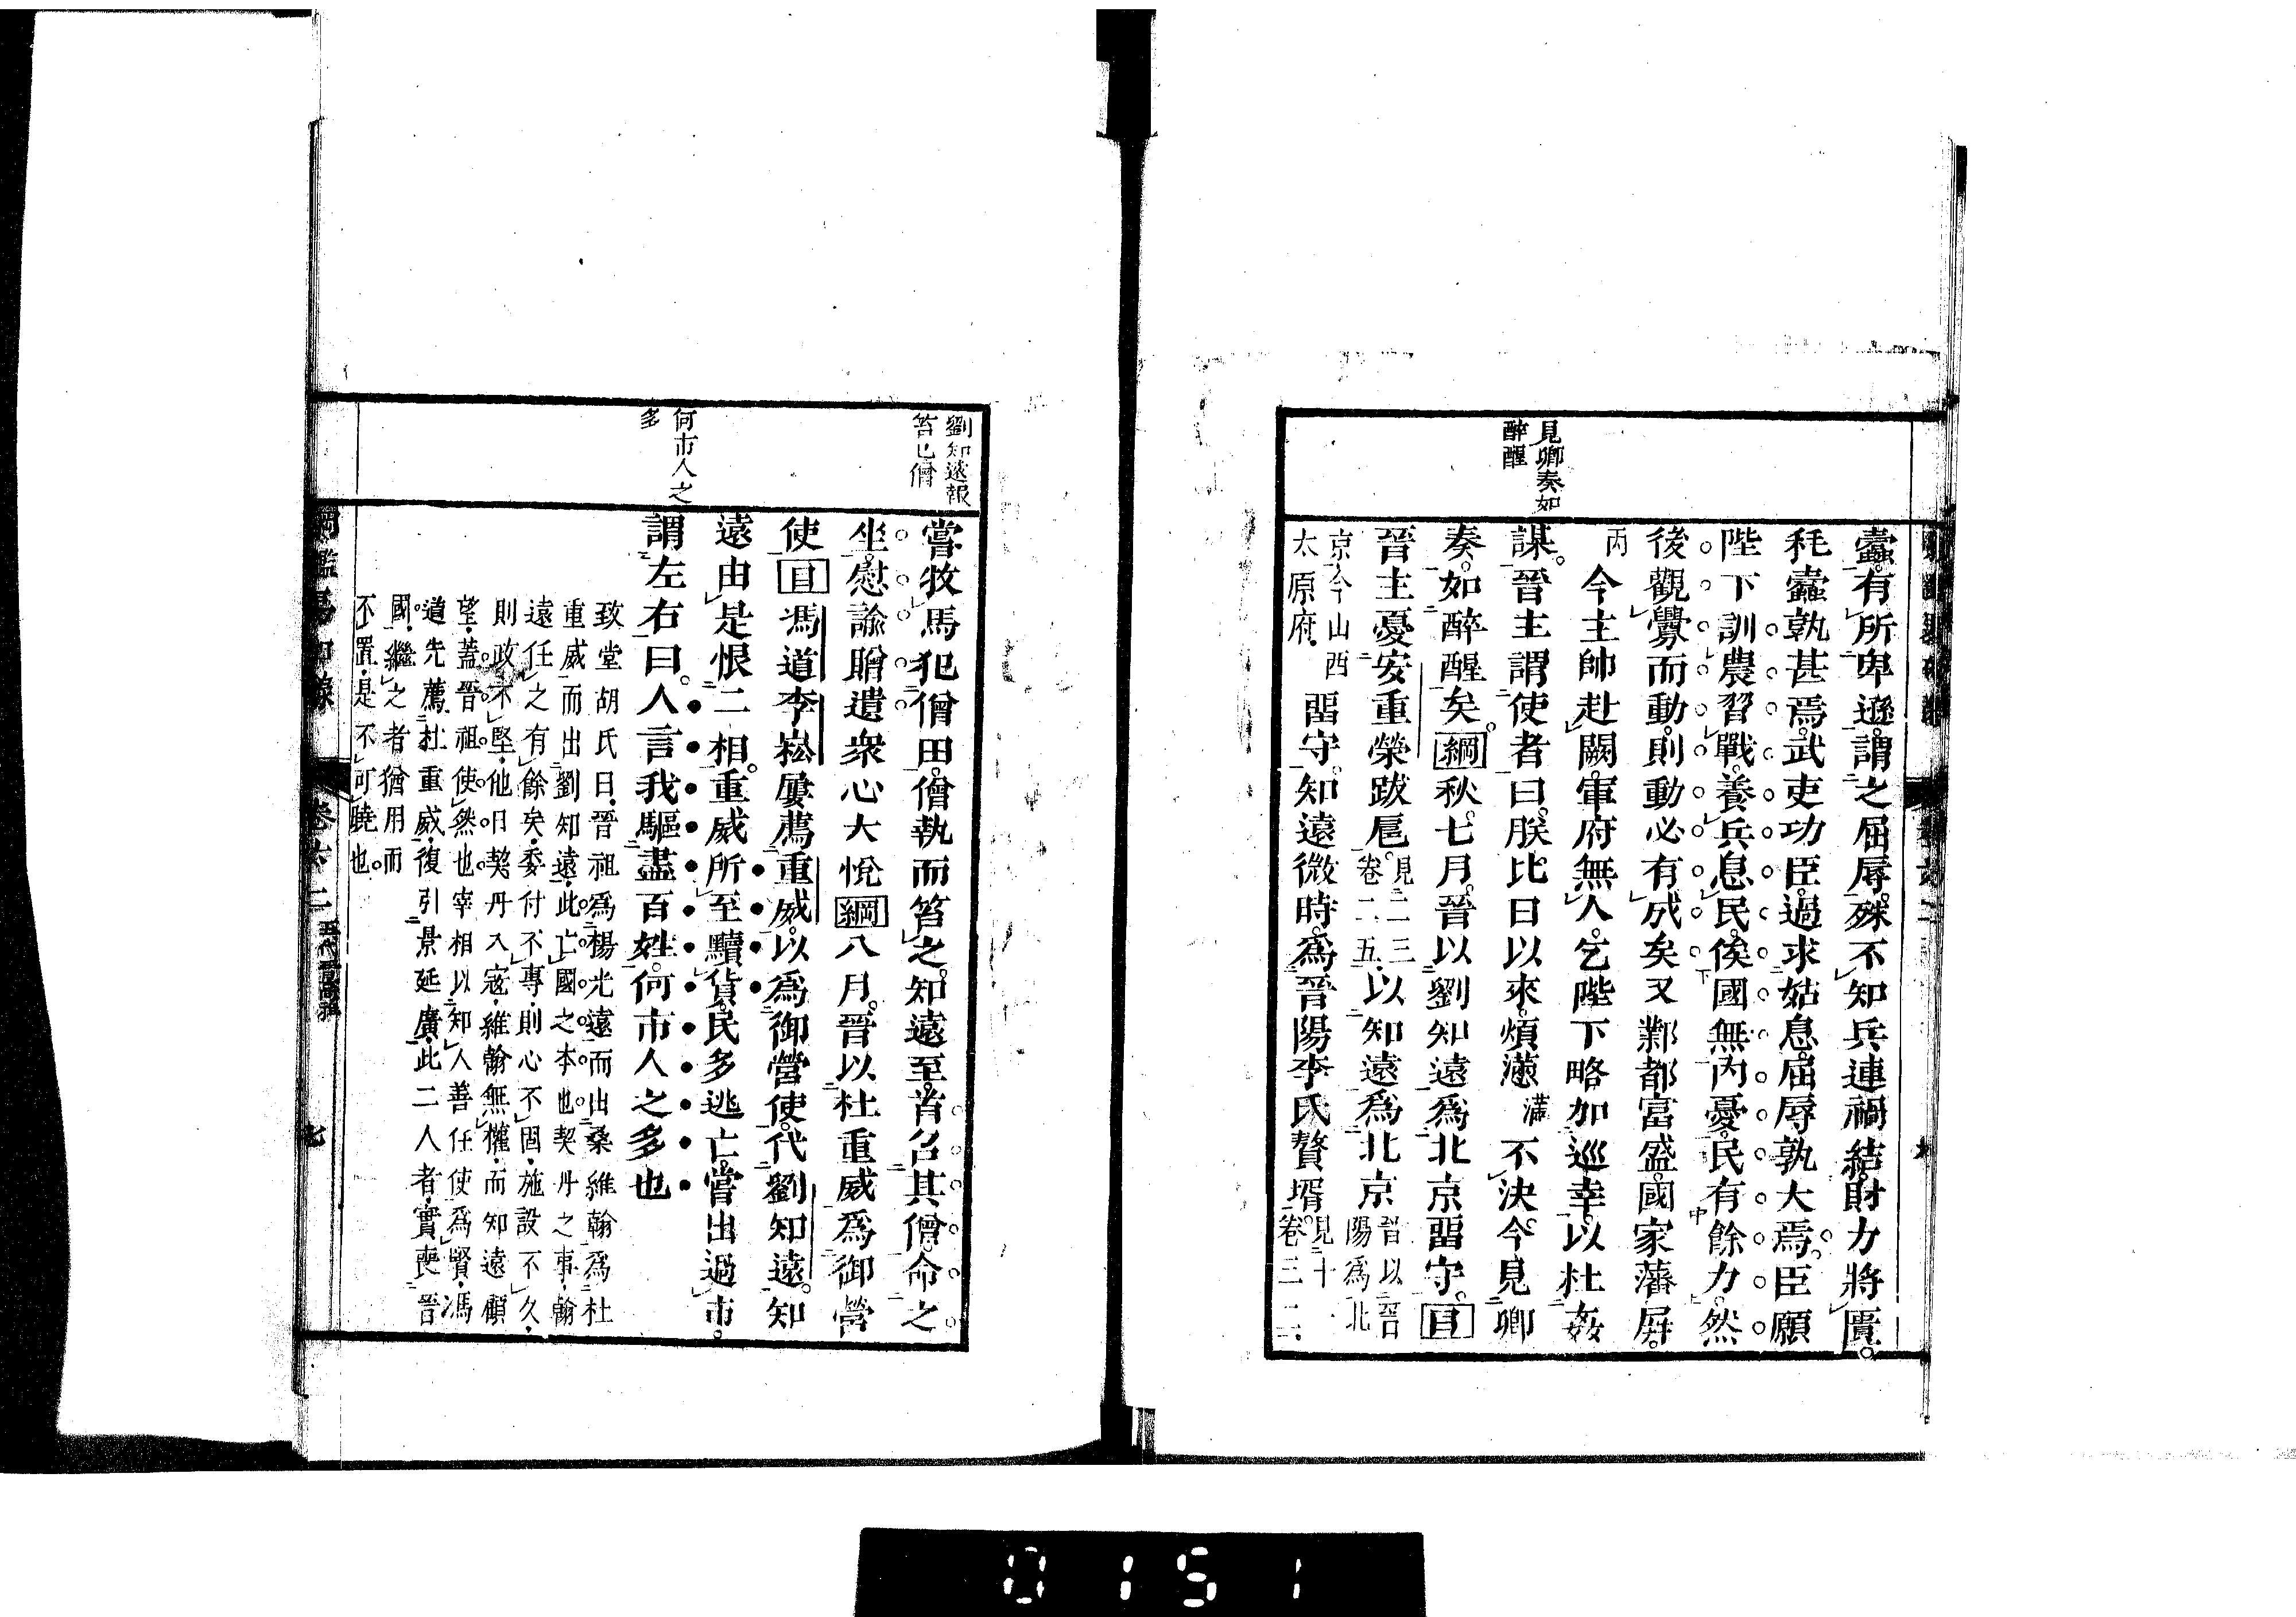 見卿奏如
醉醒
蠹有所卑遜謂之屈辱殊不知兵連禍結財力將匱
耗蠹孰甚焉武吏功臣過求姑息屈辱孰大焉臣願
陛下訓農習戰養兵息民俟國無內憂民有餘力然
後觀釁而動則動必有成矣又鄴都富盛國家藩屏
丙 今主帥赴闕軍府無人乞陛下略加巡幸以杜姦
謀晉主謂使者曰朕比日以來煩懣 滿 不決今見卿
奏如醉醒矣綱秋七月晉以劉知遠爲北京留守目
晉主憂安重榮跋扈 見二三卷二五 以知遠爲北京 晉以晉陽爲北
京今山西太原府 留守知遠微時爲晉陽李氏贅壻 見十一卷三二
劉知遠報
笞己僧
何市人之
多
嘗牧馬犯僧田僧執而笞之知遠至首召其僧命之
坐慰諭贈遺衆心大悅綱八月晉以杜重威爲御營
使目馮道李崧屢薦重威以爲御營使代劉知遠知
遠由是恨二相重威所至黷貨民多逃亡嘗出過市
謂左右曰人言我驅盡百姓何市人之多也
致堂胡氏曰晉祖爲楊光遠而出桑維翰爲杜
重威而出劉知遠此亡國之本也契丹之事翰
遠任之有餘矣委付不專則心不固施設不久
則政不堅他日契丹入寇維翰無權而知遠顧
望蓋晉祖使然也宰相以知人善任使爲賢馮
道先薦杜重威復引景延廣此二人者實喪晉
國繼之者猶用而
不置是不可曉也
綱鑑易知錄 卷六二 五代晉高祖 七
0151